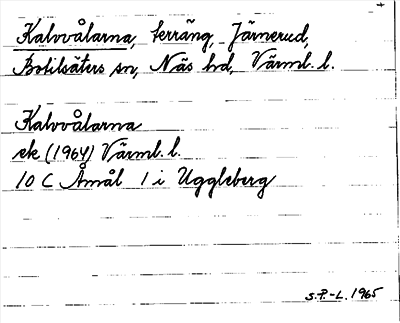 Kalvvålarna, terräng, Järnerud,
Botilsäters sn, Näs hd, Värml. l.
Kalvvålarna
ek (1964) Värml. l.
10 C Åmål 1 i Uggleberg
S.P.-L. 1965